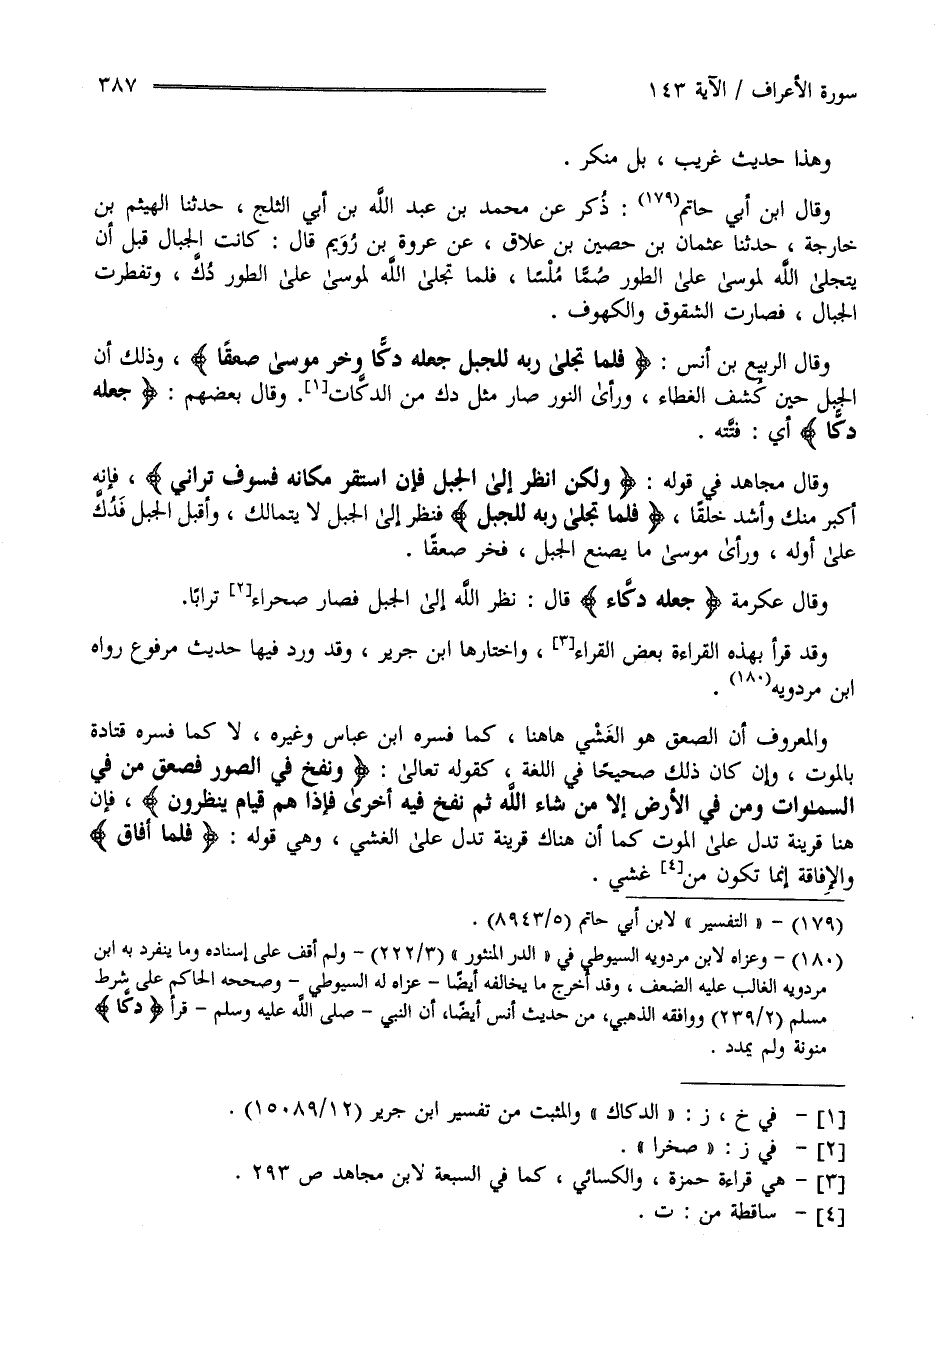 سورة الأعراف / الآية ١٤٣ ٣٨٧
وهذا حديث غريب ، بل منكر .
وقال ابن أبي حاتم(١٧٩) : ذُكر عن محمد بن عبد اللَّه بن أبي الثلج ، حدثنا الهيثم بن
خارجة ، حدثنا عثمان بن حصين بن علاق ، عن عروة بن رُوَيم قال : كانت الجبال قبل أن
يتجلىٰ اللَّه لموسىٰ علىٰ الطور صُمًّا مُلْسًا ، فلما تجلىٰ اللَّه لموسىٰ علىٰ الطور دُكَّ ، وتفطرت
الجبال ، فصارت الشقوق والكهوف .
وقال الربيع بن أنس : ﴿ فلما تجلىٰ ربه للجبل جعله دكًّا وخر موسىٰ صعقًا ﴾ ، وذلك أن
الجبل حين كُشف الغطاء ، ورأىٰ النور صار مثل دك من الدكَّات[١]. وقال بعضهم : ﴿ جعله
دكًّا ﴾ أي : فتَّته .
وقال مجاهد في قوله : ﴿ ولكن انظر إلىٰ الجبل فإن استقر مكانه فسوف تراني ﴾ ، فإنه
أكبر منك وأشد خلقًا ، ﴿ فلما تجلىٰ ربه للجبل ﴾ فنظر إلىٰ الجبل لا يتمالك ، وأقبل الجبل فَدُكَّ
علىٰ أوله ، ورأىٰ موسىٰ ما يصنع الجبل ، فخر صعقًا .
وقال عكرمة ﴿ جعله دكَّاء ﴾ قال : نظر اللَّه إلىٰ الجبل فصار صحراء[٢] ترابًا.
وقد قرأ بهذه القراءة بعض القراء[٣] ، واختارها ابن جرير ، وقد ورد فيها حديث مرفوع رواه
ابن مردويه(١٨٠) .
والمعروف أن الصعق هو الغَشْي هاهنا ، كما فسره ابن عباس وغيره ، لا كما فسره قتادة
بالموت ، وإن كان ذلك صحيحًا في اللغة ، كقوله تعالىٰ : ﴿ ونفخ في الصور فصعق من في
السمٰوات ومن في الأرض إلا من شاء اللَّه ثم نفخ فيه أخرىٰ فإذا هم قيام ينظرون ﴾ ، فإن
هنا قرينة تدل علىٰ الموت كما أن هناك قرينة تدل علىٰ الغشي ، وهي قوله : ﴿ فلما أفاق ﴾
والإفاقة إنما تكون من[٤] غشي .
(١٧٩) - « التفسير » لابن أبي حاتم (٨٩٤٣/٥) .
(١٨٠) - وعزاه لابن مردويه السيوطي في « الدر المنثور » (٢٢٢/٣) - ولم أقف على إسناده وما ينفرد به ابن
مردويه الغالب عليه الضعف ، وقد أخرج ما يخالفه أيضًا - عزاه له السيوطي - وصححه الحاكم على شرط
مسلم (٢٣٩/٢) ووافقه الذهبي، من حديث أنس أيضًا، أن النبي - صلى اللَّه عليه وسلم - قرأ ﴿ دكًّا ﴾
منونة ولم يمدد .
[١] - في خ ، ز : « الدكاك » والمثبت من تفسير ابن جرير (١٥٠٨٩/١٢) .
[٢] - في ز : « صخرا » .
[٣] - هي قراءة حمزة ، والكسائي ، كما في السبعة لابن مجاهد ص ٢٩٣ .
[٤] - ساقطة من : ت .